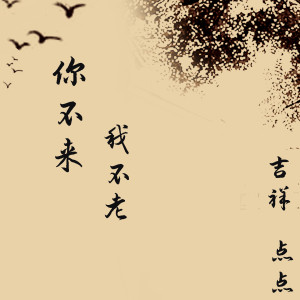 你不来
我不老
吉祥 点点